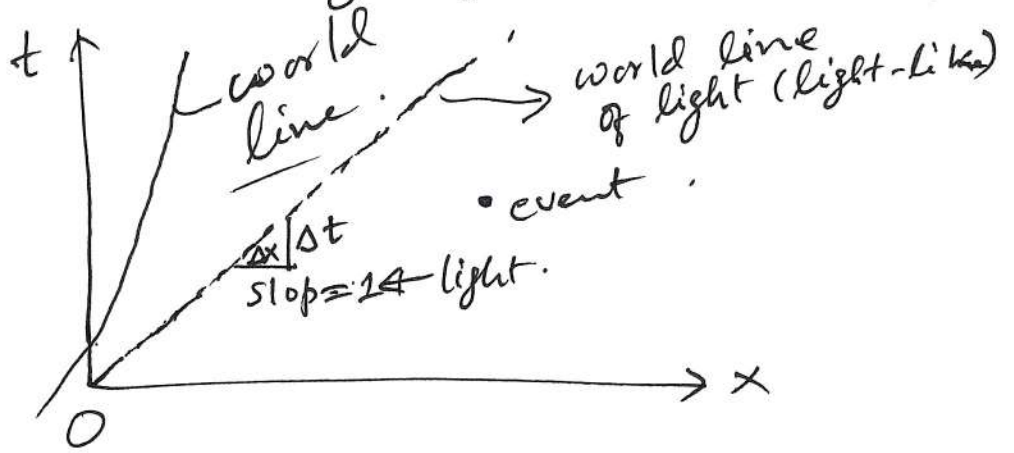 t
world
line
world line
of light (light-like)
• event
Δx
Δt
slop = 1 ← light.
x
O